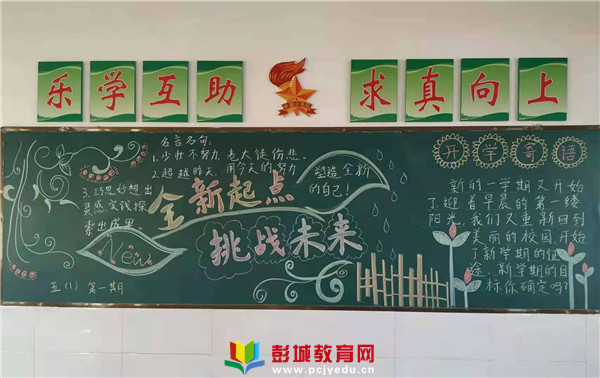 乐学互助
求真向上
名言名句:
1.少壮不努力,老大徒伤悲。
2.超越昨天,用今天的努力
塑造全新
的自己!
3.巧思妙想出
灵感,实践探
索出成果。
全新起点
挑战未来
New
五(1) 第一期
开学寄语
新的一学期又开始
了,迎着早晨的第一缕
阳光,我们又重新回到
美丽的校园,开始
了新学期的征
途,新学期的目
标你确定吗?
彭城教育网
www.pcjyedu.cn